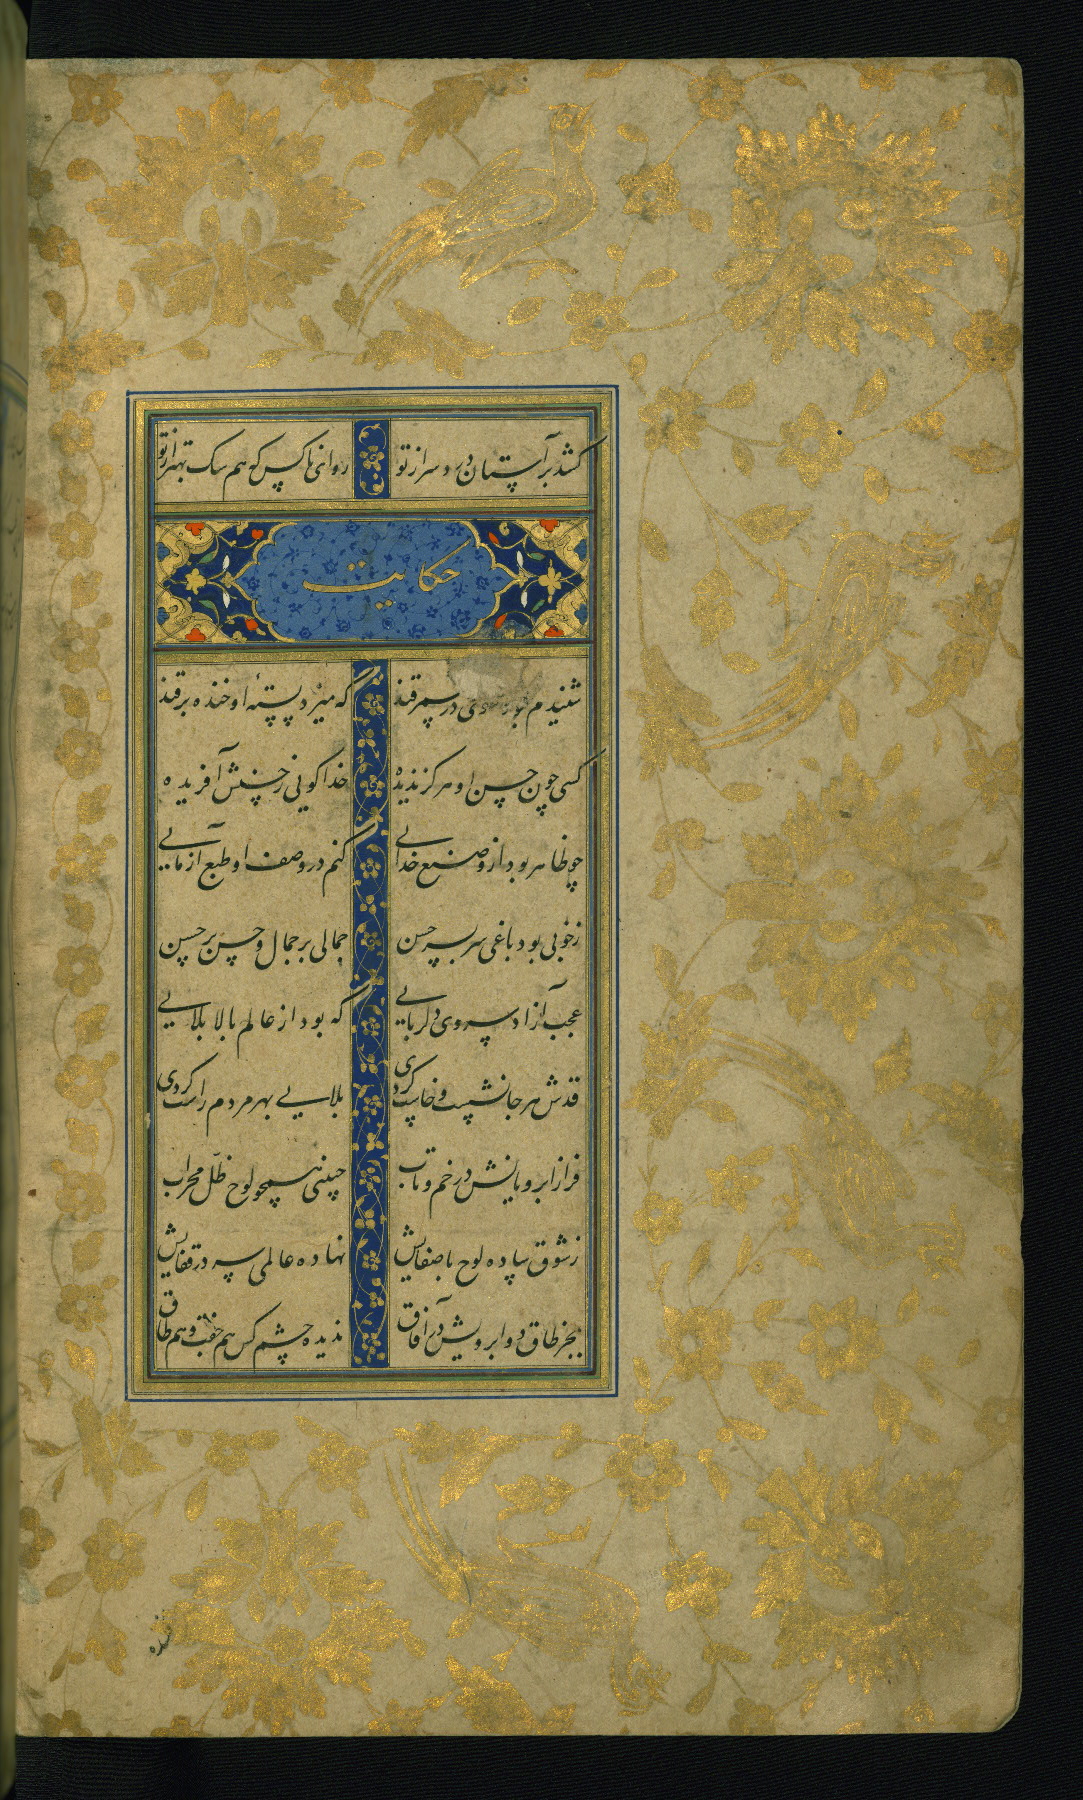 کشد بر آستان در دسر از تو روانی ناکس که هم سک بهتر از تو
حکایت
شنیدم بود در سمرقند که میزد پستهٔ او خنده بر قند
کسی چون حسن او هرگز ندیده خدا گوئی ز حسنش آفریده
چو ظاهر بود از و صنع خدایی کنم در وصف او طبع آزمایی
ز خوبی بود باغی سر بسر حسن جمالی بر جمال و حسن بر حسن
عجب آزاد سروی دلربایی که بود از عالم بالا بلایی
قدش هر جا نشست و خاست کردی بلایی بهر مردم راست کردی
فراز ابروانش در خم و تاب جبینی همچو لوح ظل محراب
ز شوق ساده لوح با صفایش نهاده عالمی سر در قفایش
بجز طاق دو ابرویش در آفاق ندیده چشم کس هم جفت و هم طاق